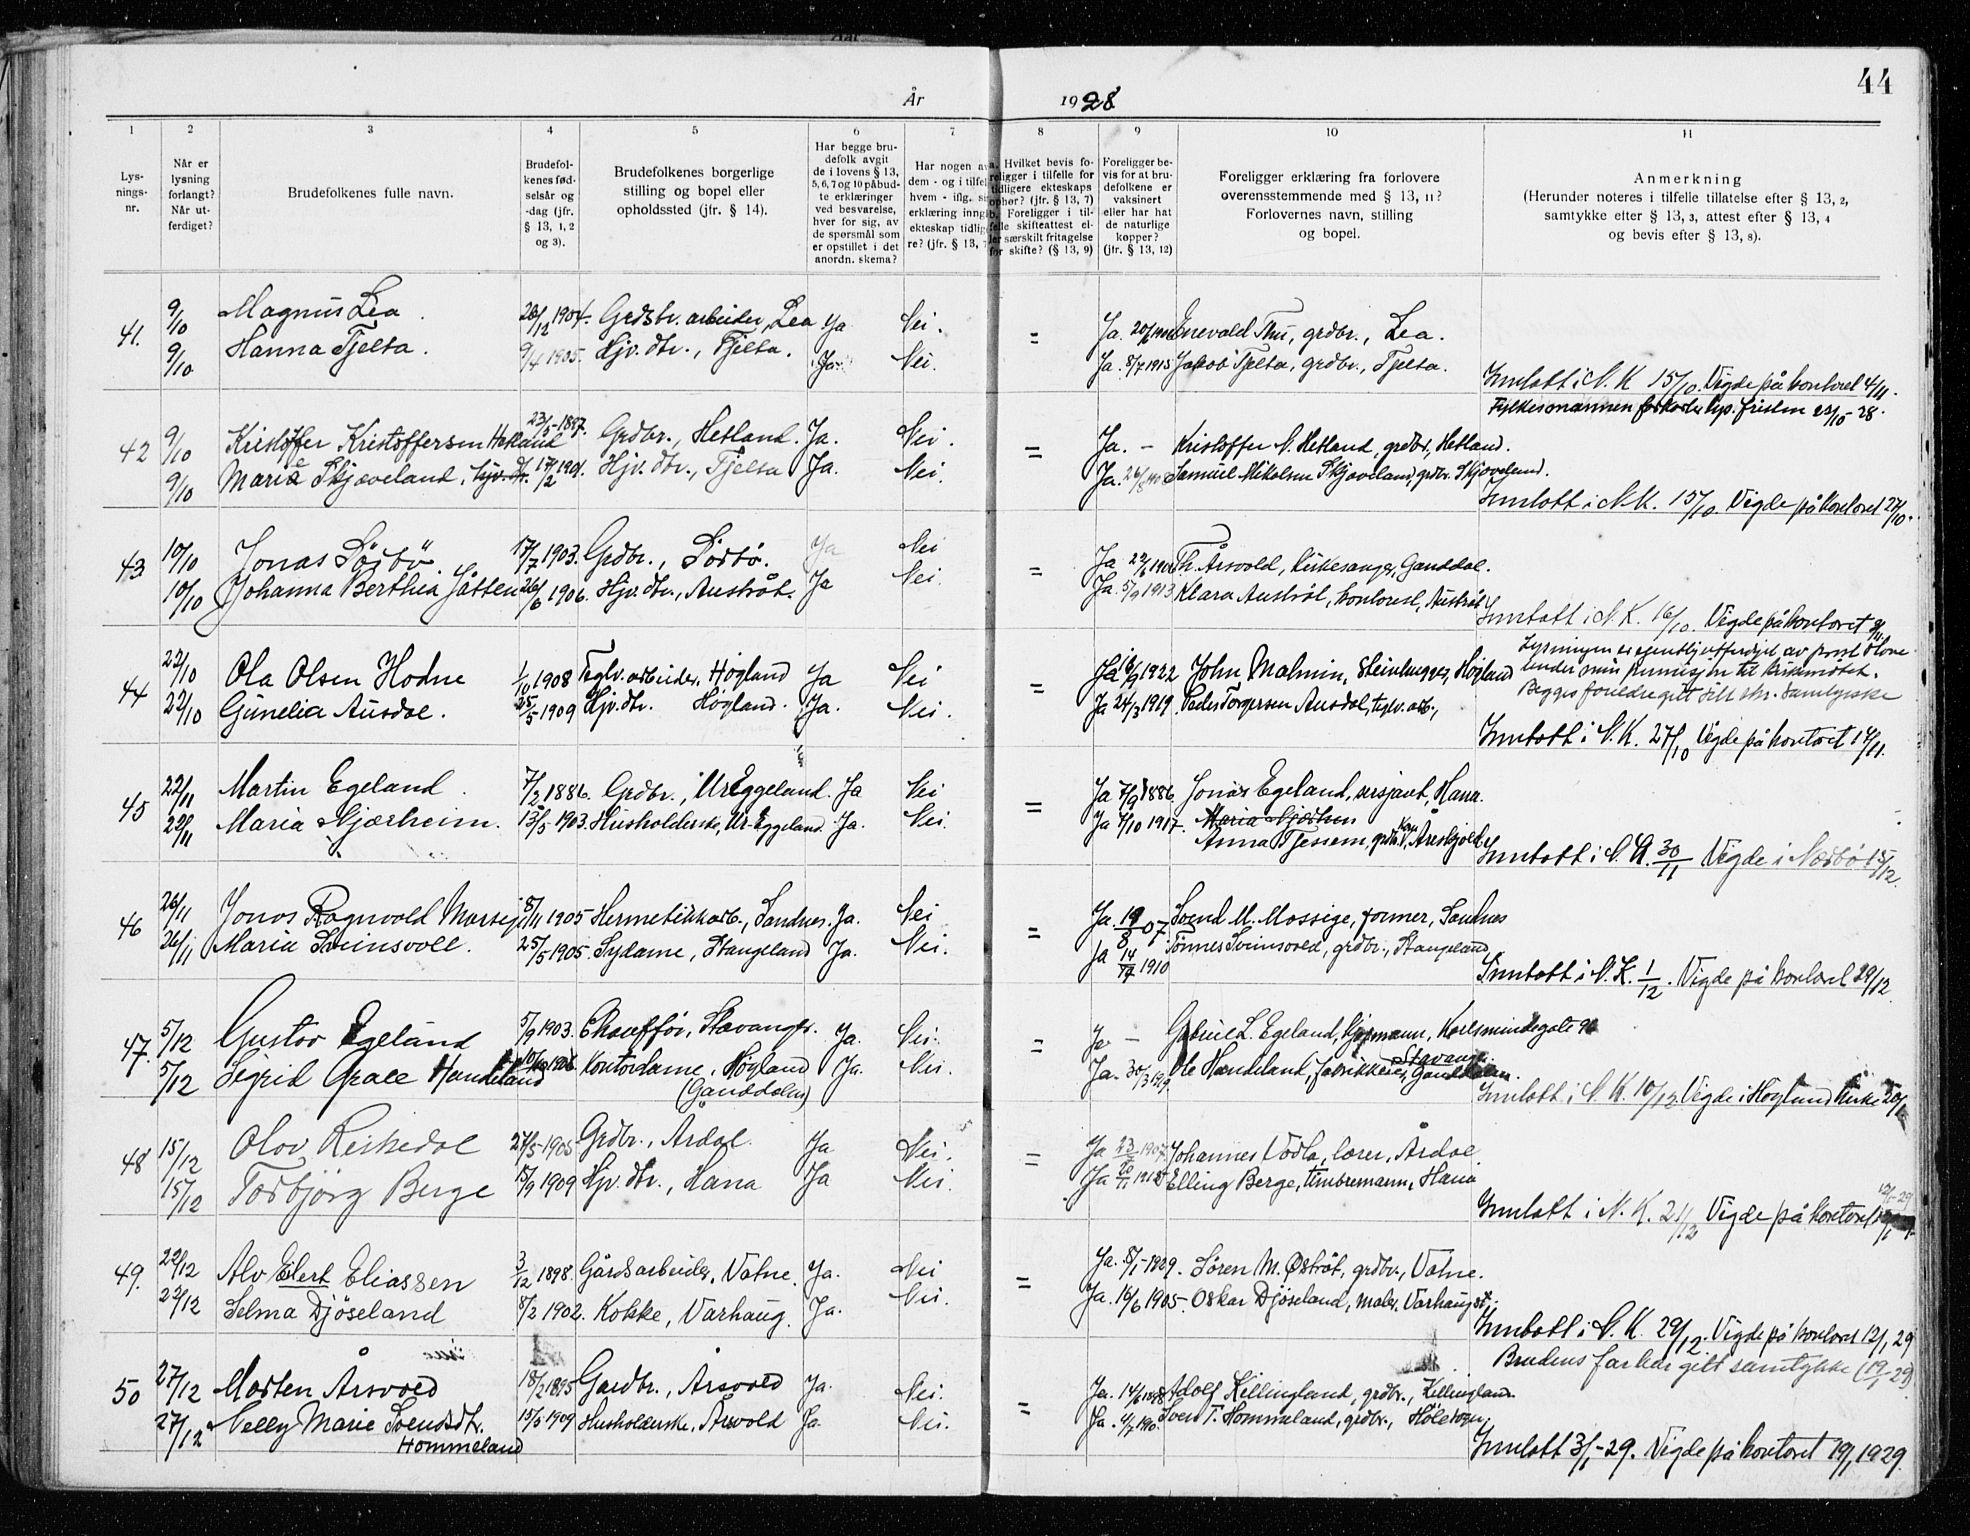 44
År 1928
1 2 3 4 5 6 7 8 9 10 11
Lys-
nings-
nr.
Når er
lysning
forlangt?
Når ut-
ferdiget?
Brudefolkenes fulle navn.
Brudefol-
kenes fød-
selsår og
-dag (jfr.
§ 13, 1, 2
og 3).
Brudefolkenes borgerlige
stilling og bopel eller
opholdssted (jfr. § 14).
Har begge bru-
defolk avgit
de i lovens § 13,
5, 6, 7 og 10 påbud-
te erklæringer
ved besvarelse,
hver for sig, av
de spørsmål som
er opstillet i det
anordn. skema?
Har nogen av
dem - og i tilfel
hvem - iflg.
erklæring inng
ekteskap tidlig
re? (jfr. § 13, 7
a. Hvilket bevis fo-
religger i tilfelle for
tidligere ekteskaps
ophør? (jfr. § 13, 7)
b. Foreligger i til-
felle skifteattest el-
ler særskilt fritagelse
for skifte? (§ 13, 9)
Foreligger be-
vis for at bru-
defolkene er
vaksinert
eller har hat
de naturlige
kopper?
(jfr. § 13, 12)
Foreligger erklæring fra forlovere
overensstemmende med § 13, 11?
Forlovernes navn, stilling
og bopel.
Anmerkning
(Herunder noteres i tilfelle tillatelse efter § 13, 2,
samtykke efter § 13, 3, attest efter § 13, 4
og bevis efter § 13, 8).
41. 9/10 Magnus Lea. 26/12 1904. Grdbr. arbeider, Lea Ja Nei. = Ja. Enevald Thu, grdbr., Lea.
9/10 Hanna Tjelta. 9/4 1905. Hjv. dtr., Tjelta. Ja. Nei. Ja. 8/7 1915 Jakob Tjelta, grdbr., Tjelta.
Inntatt i N. K 15/10. Vigde på kontoret 4/11.
Fylkesmannen forkortet lys. fristen 23/10-28.
42 9/10 Kristoffer Kristoffersen Hetland 23/5-1897. Grdbr., Hetland. Ja. Nei. = Ja. - Kristoffer N. Hetland, grdbr., Hetland.
9/10 Marie Skjæveland, 17/2 1901. Hjv. dtr., Tjelta Ja. Nei. Ja. Samuel Mikalsen Skjæveland, grdbr. Skjæveland.
Inntatt i N.K. 15/10. Vigde på kontoret 27/10.
43. 10/10 Jonas Sörbö. 17/7 1903. Grdbr., Sörbö. Ja Nei = Ja Th. Årsvold, kirkesanger, Ganddal.
10/10 Johanna Berthea Jåtten 26/6 1906. Hjv. dtr., Austråt. Ja Nei. Ja. 5/9 1913 Klara Austråt, kontorist, Austråt
Inntatt i N. K. 16/10. Vigde på kontoret
44 22/10 Ola Olsen Hodne 1/10 1908 Teglv. arbeider, Høyland Ja Nei = Ja 16/9 1922 John Malmin, Steinhugger, Høyland
22/10 Gunelia Ausdal. 25/5 1909 Hjv. dtr. Høyland. Ja. Nei. Ja 24/3 1919. Peder Torgersen Ausdal, teglv. arb.,
Lysningen er egentlig utferdiget av prost
under min permisjon til kirkemötet.
Begges foreldre gitt sitt skr. samtykke
Inntatt i N. K. 27/10 Vigde på kontoret 17/11.
45 22/11 Martin Egeland. 7/2 1886. Grdbr., Ur.Eggeland. Ja Nei = Ja 7/9 1886 Jonas Egeland, sersjant, Hana.
22/11 Maria Njærheim. 13/5-1903. Husholderske, Ur-Eggeland. Ja. Nei. Ja 1/10 1917. Anna Tjessem, grdbr. kone, V. Åreskjold
Inntatt i N. A. 30/11 Vigde i Nærbö 15/12.
46 26/11 Jonas Ragnvald Mossige 8/11 1905 Hermetikkarb., Sandnes. Ja. Nei = Ja. 19/8 07 Svend M. Mossige, former, Sandnes
26/11 Maria Svinsvoll. 25/5-1905. Sydame, Stangeland Ja. Nei. Ja 14/ 1910 Tönnes Svinsvoll, grdbr., Stangeland
Inntatt i N. K. 1/12. Vigde på kontoret 29/12
47. 5/12 Gustav Egeland 5/9 1903. Chaufför, Stavanger. Ja. Nei. = Ja - Gabriel L. Egeland, kjøpmann, Karlsmindegate 96
5/12 Sigrid Grace Handeland Kontordame, Høyland Ja. Nei. Ja. 30/3 1919 Ole Handeland, fabrikkeier, Ganddalen.
(Ganddalen) Stavanger.
Inntatt i N. K. 10/12. Vigde i Høyland kirke
48 15/12 Olav Leikedal 27/5-1905 Grdbr., Årdal. Ja Nei. = Ja 1907 Johannes Vadla, lærer, Årdal
15/12 Torbjörg Berge 15/9 1909 Hjv. dtr., Hana Ja Nei. Ja Elling Berge, timbremann, Hana
Inntatt i N. K. 21/12 Vigde på kontoret
49. 22/12 Alv Elert Eliassen 3/12 1898. Gårdsarbeider, Vatne. Ja. Nei = Ja. 8/1-1929. Søren M. Østråt, grdbr., Vatne.
22/12 Selma Djöseland 8/2 1902. Kokke, Varhaug. Ja. Nei. Ja. 16/6 1905. Oskar Djöseland, maler, Varhaug st.
Inntatt i N. K. 29/12. Vigde på kontoret 12/1 29
Brudens far har gitt samtykke
50 27/12 Morten Årsvold 18/2 1895 Gardbr., Årsvold Ja. Nei. = Ja. Adolf Killingland, grdbr., Killingland
27/12 Nelly Marie Svendsdtr. Hommeland 15/5 1909 Husholderske, Årsvold Ja Nei. Ja. 4/7 1910. Sven T. Hommeland, grdbr., Hölesogn.
Inntatt 3/1-29. Vigde på kontoret 19/1 1929.